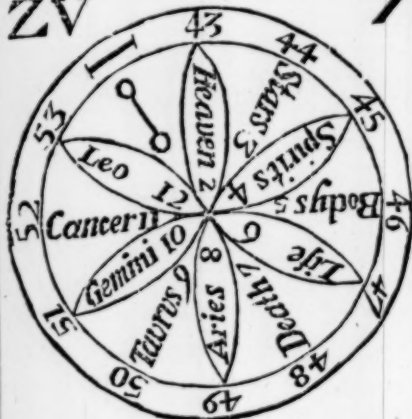 43
44
45
46
47
48
49
50
51
52
53
Heaven 2
Stars 3
Spirits 4
Bodys 5
Life 6
Death 7
Aries 8
Taurus 9
Gemini 10
Cancer 11
Leo 12